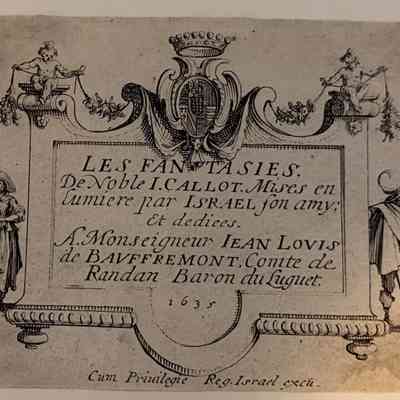 LES FANTASIES.
De Noble I. CALLOT. Mises en
lumiere par ISRAEL son amy;
Et dediees.
A. Monseigneur IEAN LOVIS
de BAVFFREMONT. Comte de
Randan Baron du Luguet.
1635
Cum Privilegie Reg. Israel excu.